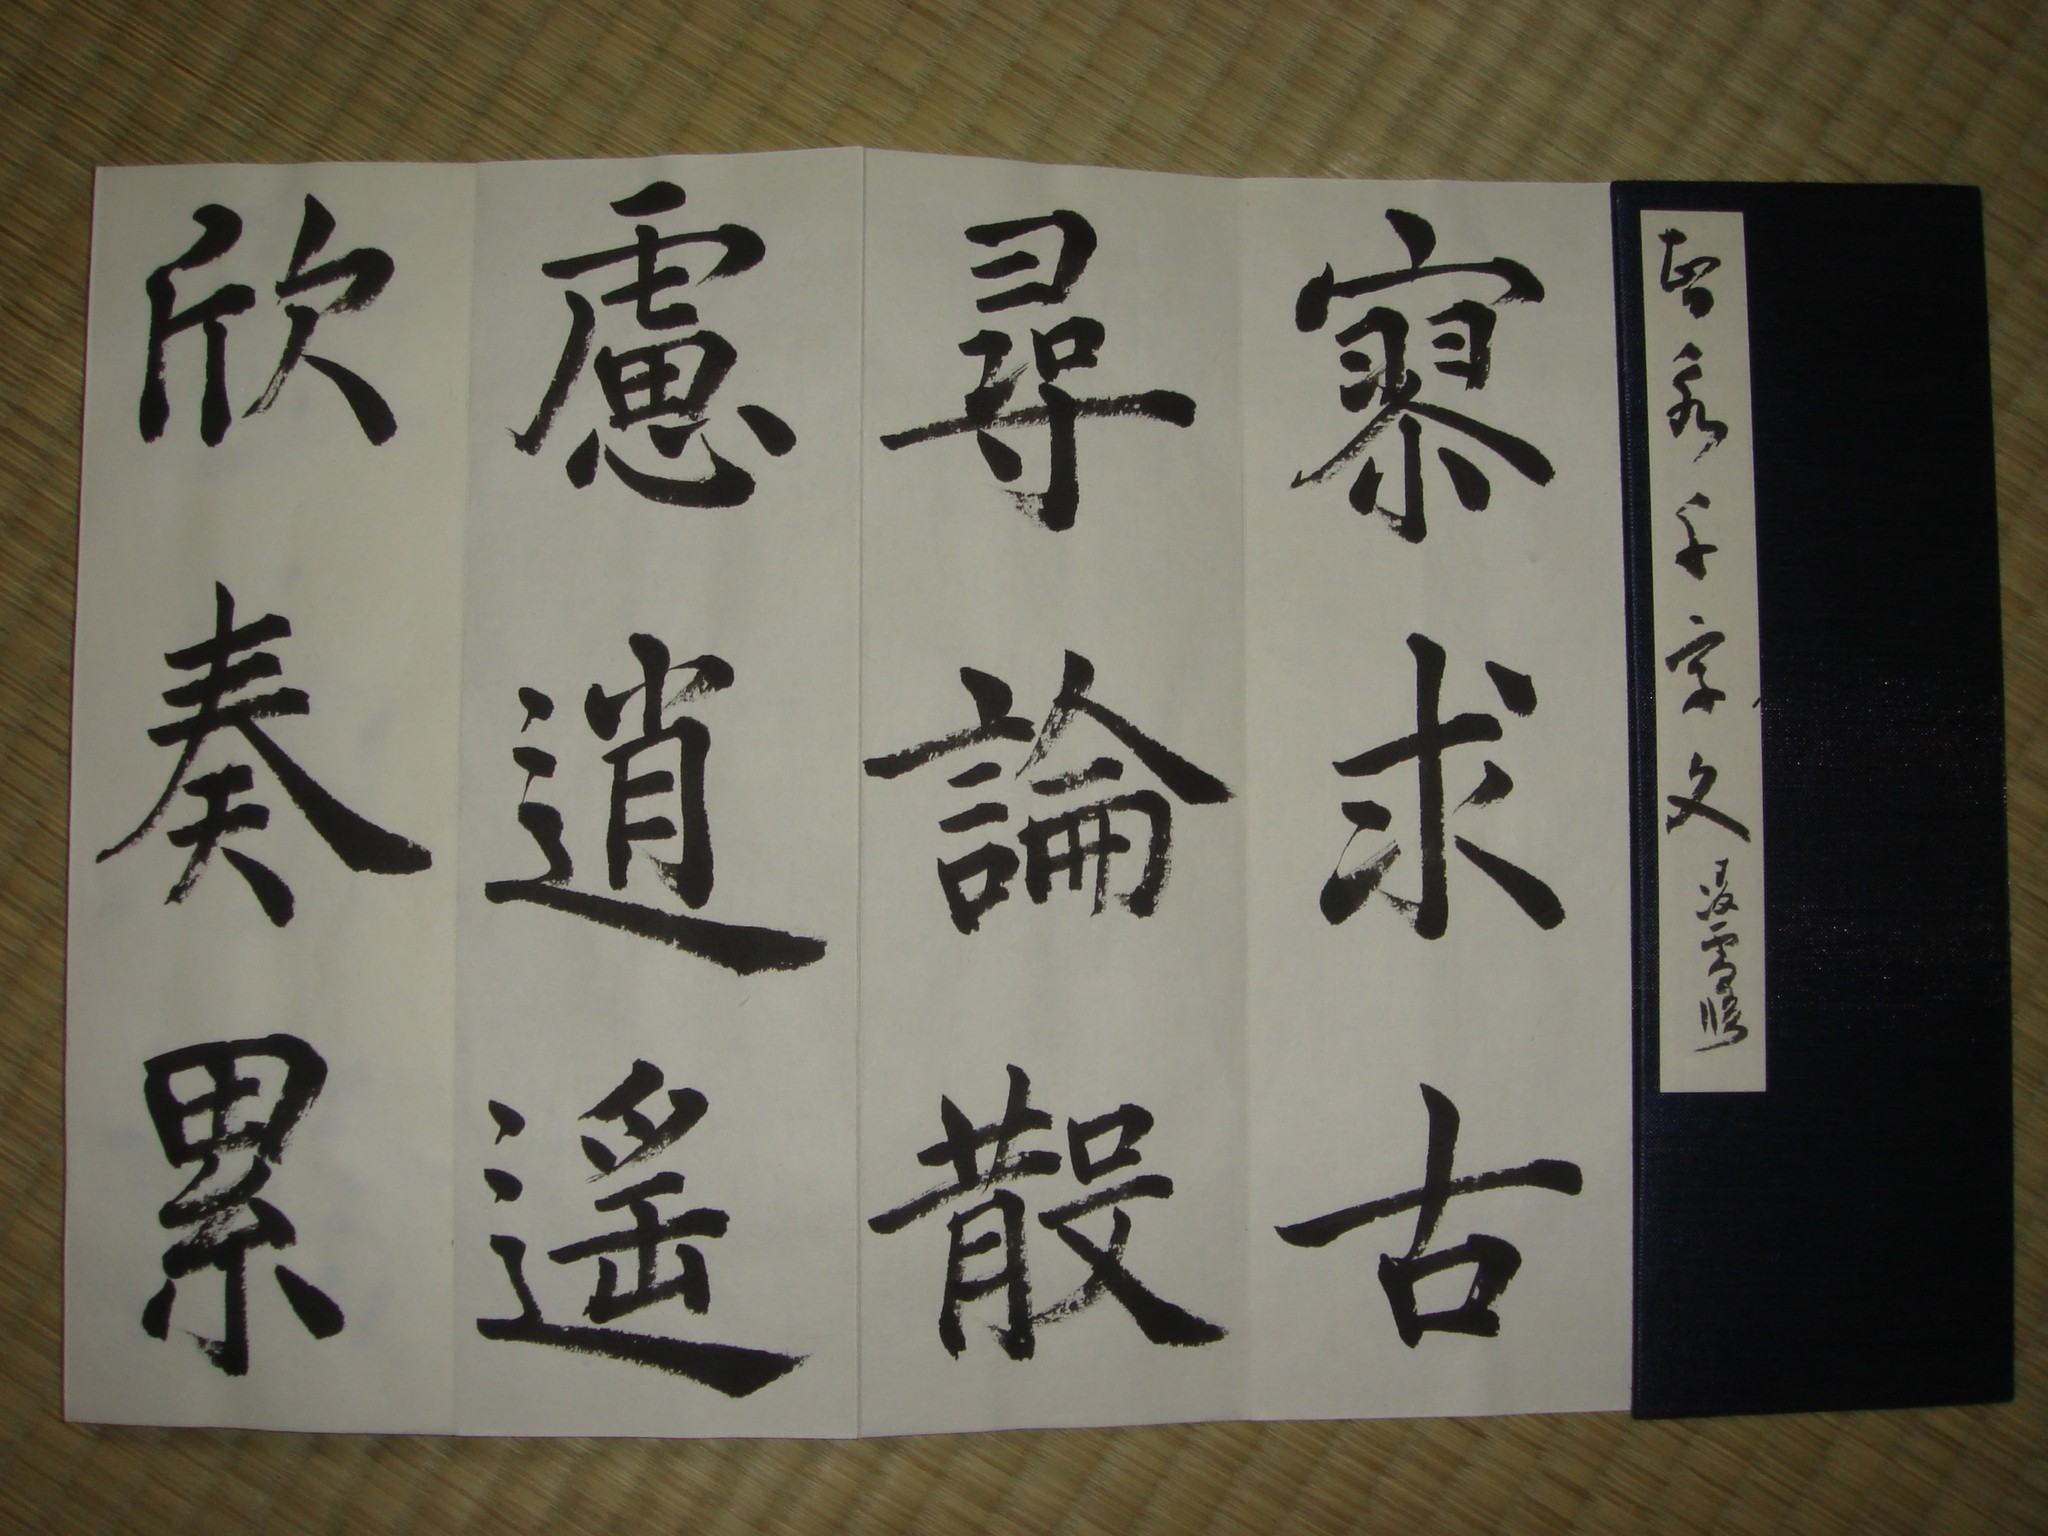 智永千字文
寥求古
尋論散
慮逍遥
欣奏累